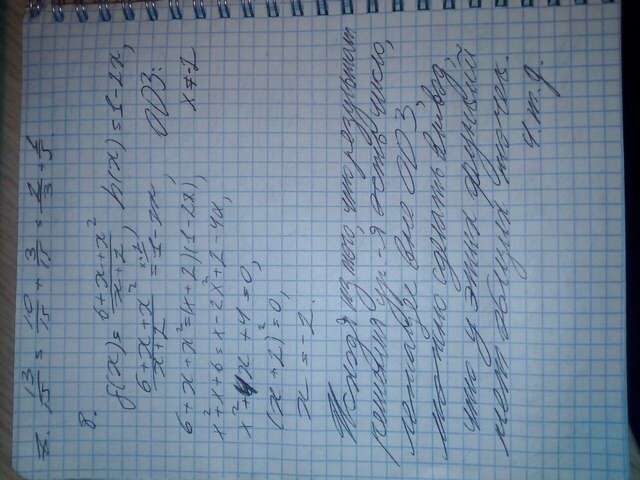 7. 13/15 = 10/15 + 3/15 = 2/3 + 1/5
8.
f(x) = (6+x+x²)/(x+2), h(x) = 1-2x,
(6+x+x²)/(x+2) = 1-2x ОДЗ:
6+x+x² = (x+2)(1-2x), x≠-2
x²+x+6 = x-2x²+2-4x,
x²+4x+4=0,
(x+2)²=0,
x=-2.
Исходя из того, что результатом
решения ур-я есть число,
лежащее вне ОДЗ,
можно сделать вывод,
что у этих функций
нет общих точек.
ч.т.д.